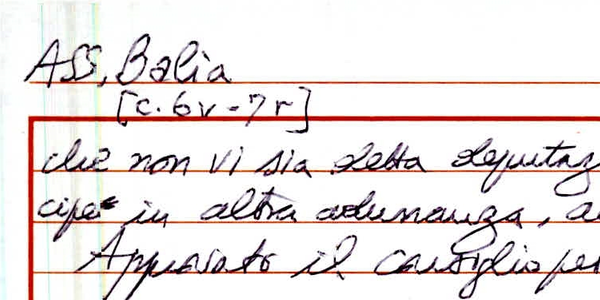 ASS, Balia
[c. 6v - 7r]
che non vi sia detta deputaz
cipe in altra adunanza, a
Apparato il consiglio per